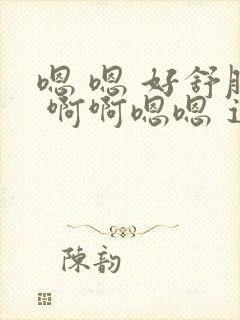 嗯 嗯 好舒
啊啊嗯嗯
陳韵